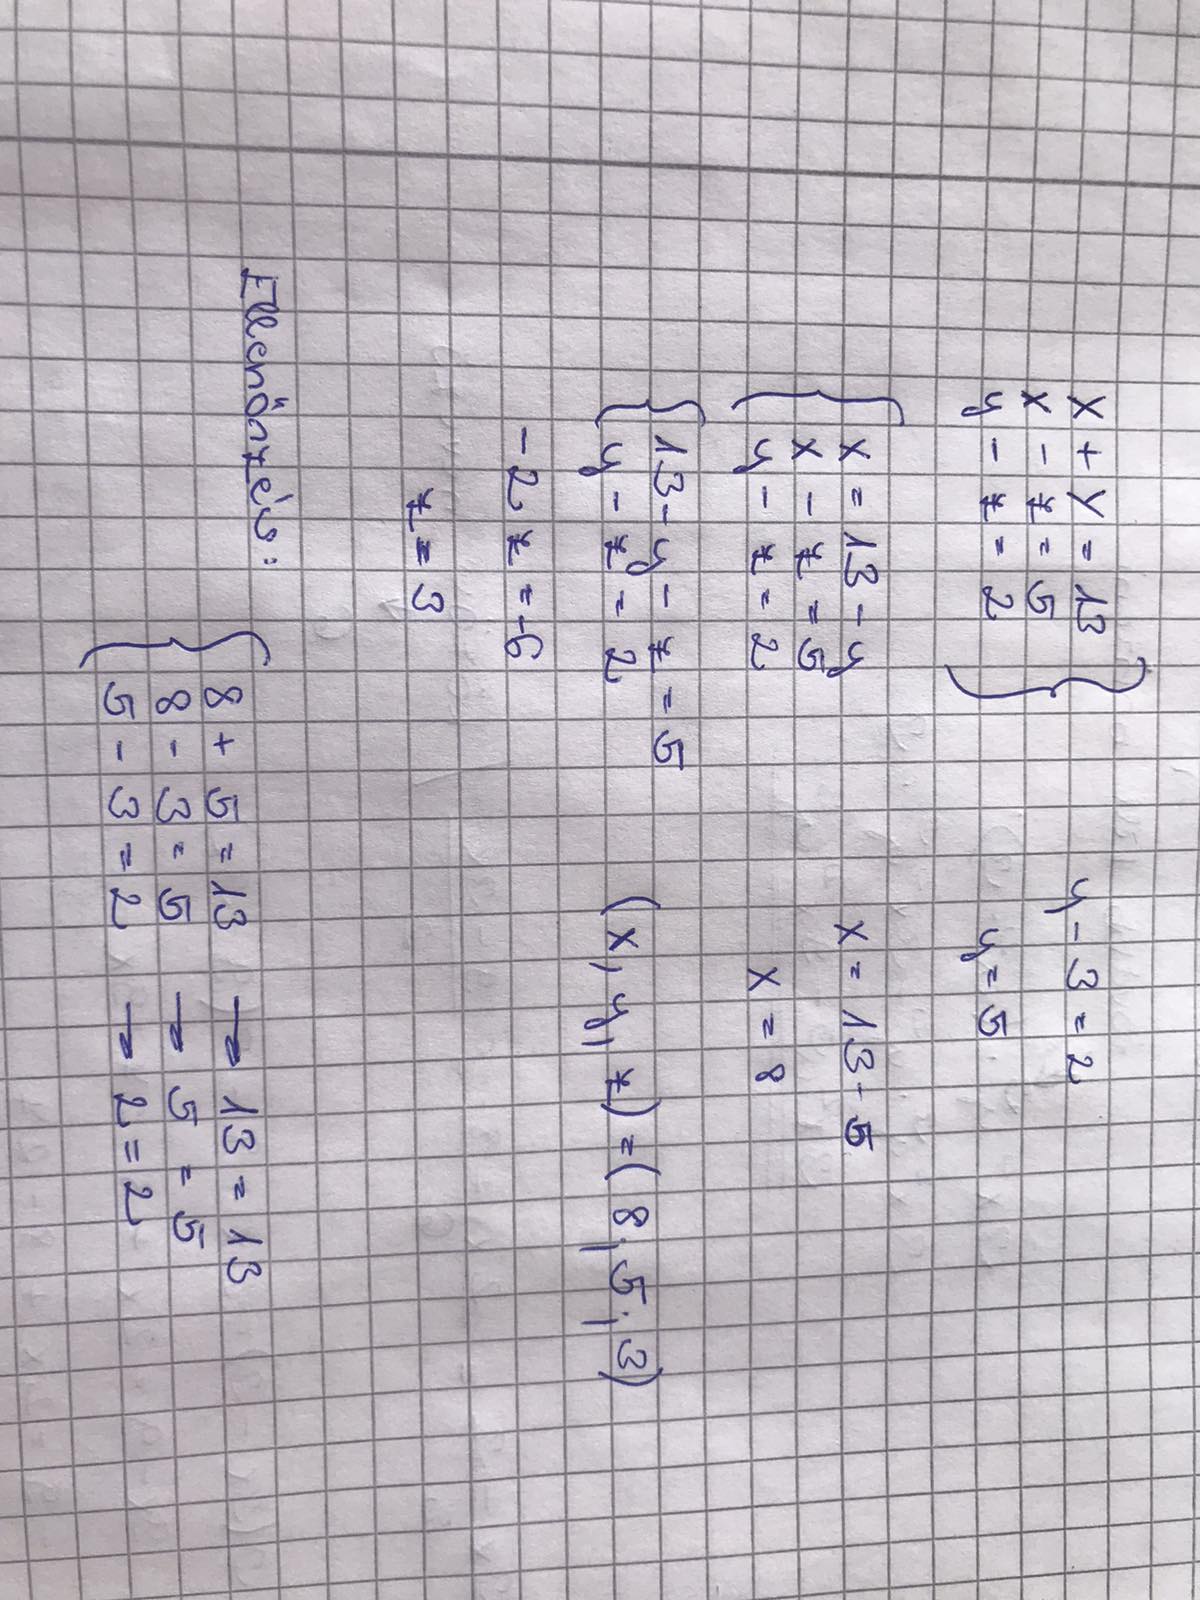 x + y = 13
x - z = 5
y - z = 2
x = 13 - y
x - z = 5
y - z = 2
13 - y - z = 5
y - z = 2
-2z = -6
z = 3
y - 3 = 2
y = 5
x = 13 - 5
x = 8
(x, y, z) = (8; 5; 3)
Ellenőrzés:
8 + 5 = 13 → 13 = 13
8 - 3 = 5 → 5 = 5
5 - 3 = 2 → 2 = 2